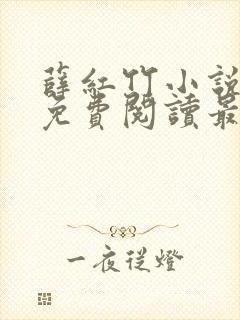 薛紅竹小說
免費閱讀最
一夜從燈